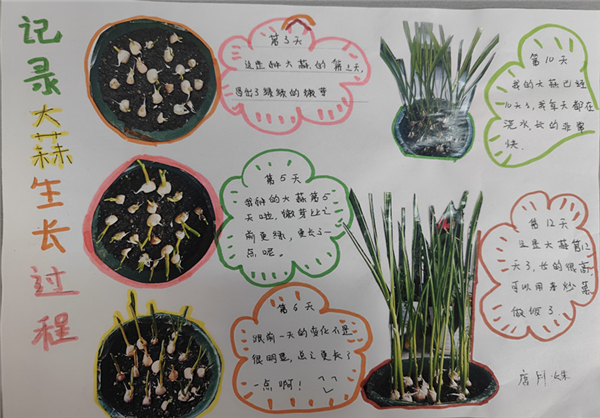 记录大蒜生长过程
第3天
这是种大蒜的第3天,
冒出了绿绿的嫩芽
第5天
我种的大蒜第5
天啦,嫩芽比之
前更绿,更长了一
点呢。
第6天
跟前一天的变化不是
很明显,总之更长了
一点啊!
第10天
我的大蒜已经
10天了,我每天都在
浇水,长的非常
快.
第12天
这是大蒜第12
天了,长的很高,
可以用来炒菜
做饭了.
唐